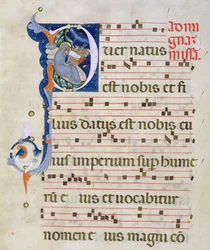 Puer natus
missa.
est nobis et fi
lius datus est nobis cu
ius imperium sup hume
rū e ius et vocabitur
nomen e ius magni cō